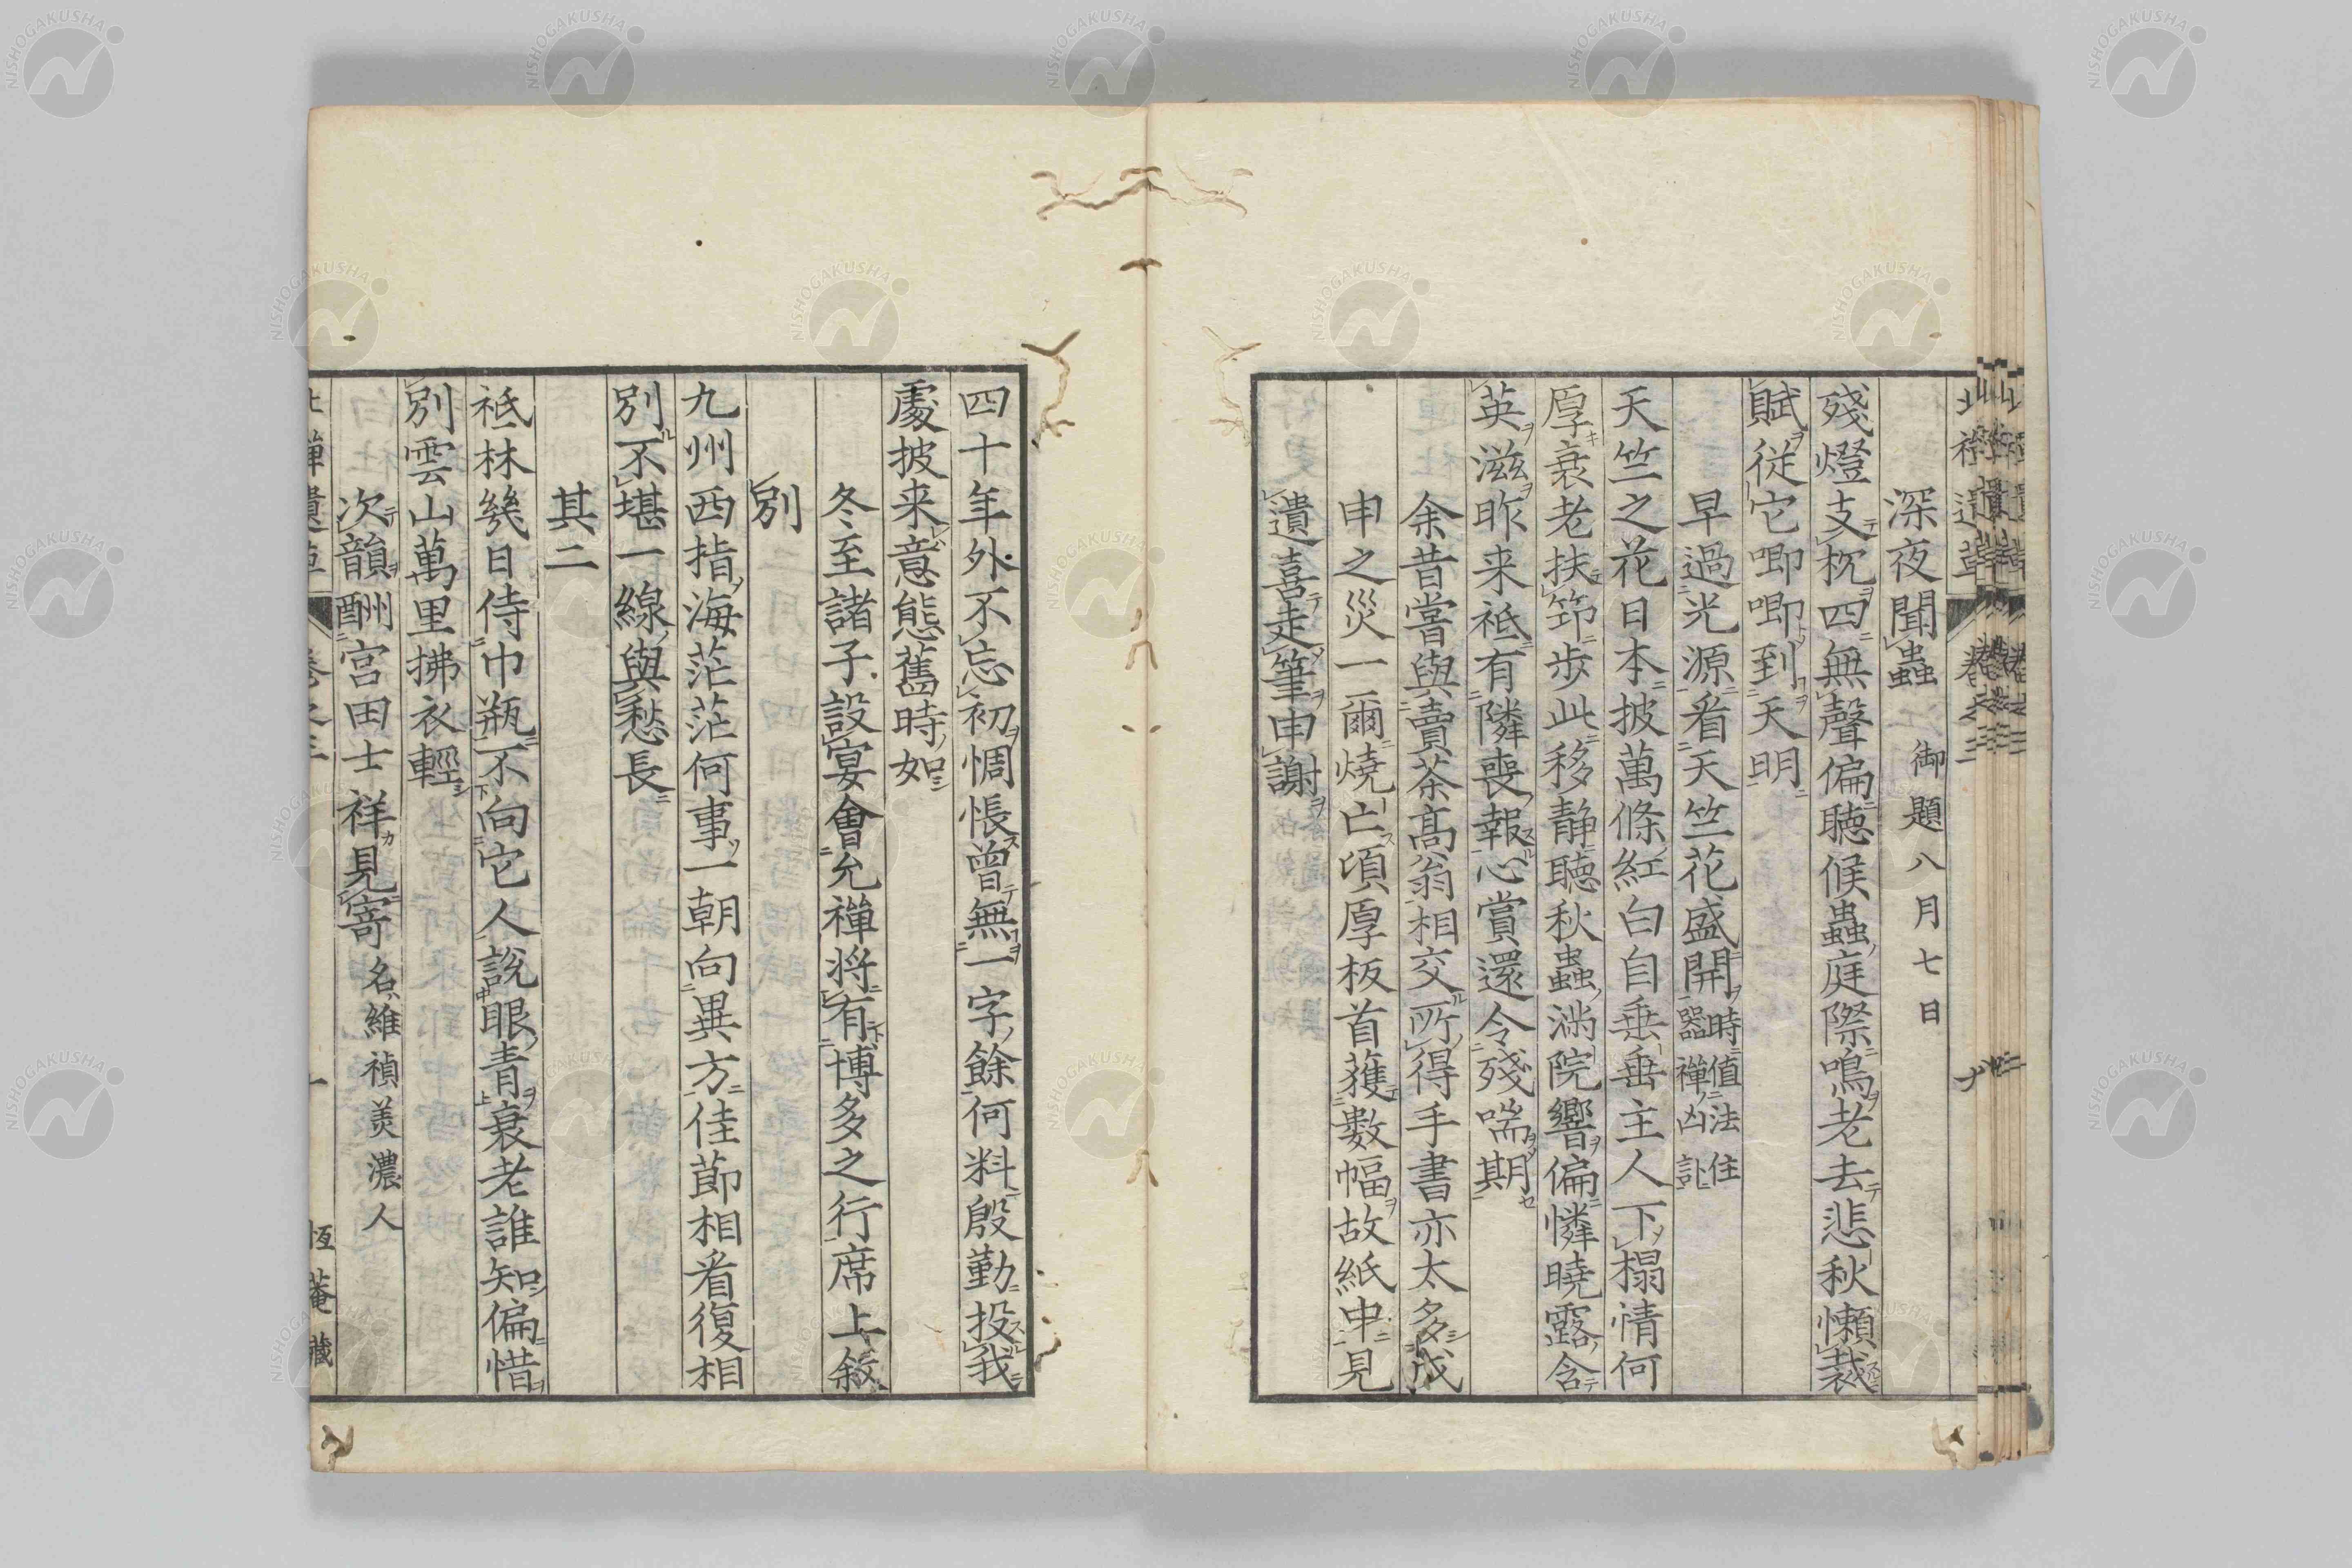 深夜聞蟲 御題八月七日
殘燈支枕四無聲偏聴候蟲庭際鳴老去悲秋懶裁
賦從它唧唧到天明
早過光源看天竺花盛開時值法住噐禪凶訃
天竺之花日本披萬條紅白自乗垂主人下榻情何
厚衰老扶筇歩此移静聴秋蟲満院響偏憐曉露含
英滋昨来祗有隣喪報心賞還令殘喘期
余昔嘗與賣茶髙翁相交所得手書亦太多戊
申之災一爾焼亡頃厚板首獲數幅故紙中見
遺喜走筆申謝
四十年外不忘初惆悵曾無一字餘何料殷勤投我
處披来意態舊時如
冬至諸子設宴會允禪将有博多之行席上叙
別
九州西指海茫茫何事一朝向異方佳莭相看復相
別不堪一線與愁長
其二
祗林幾日侍巾瓶不向它人說眼青衰老誰知偏惜
別雲山萬里拂衣輕
次韻酬宮田士祥見寄 名維禎美濃人
北禪遺草 卷之三 恆菴藏